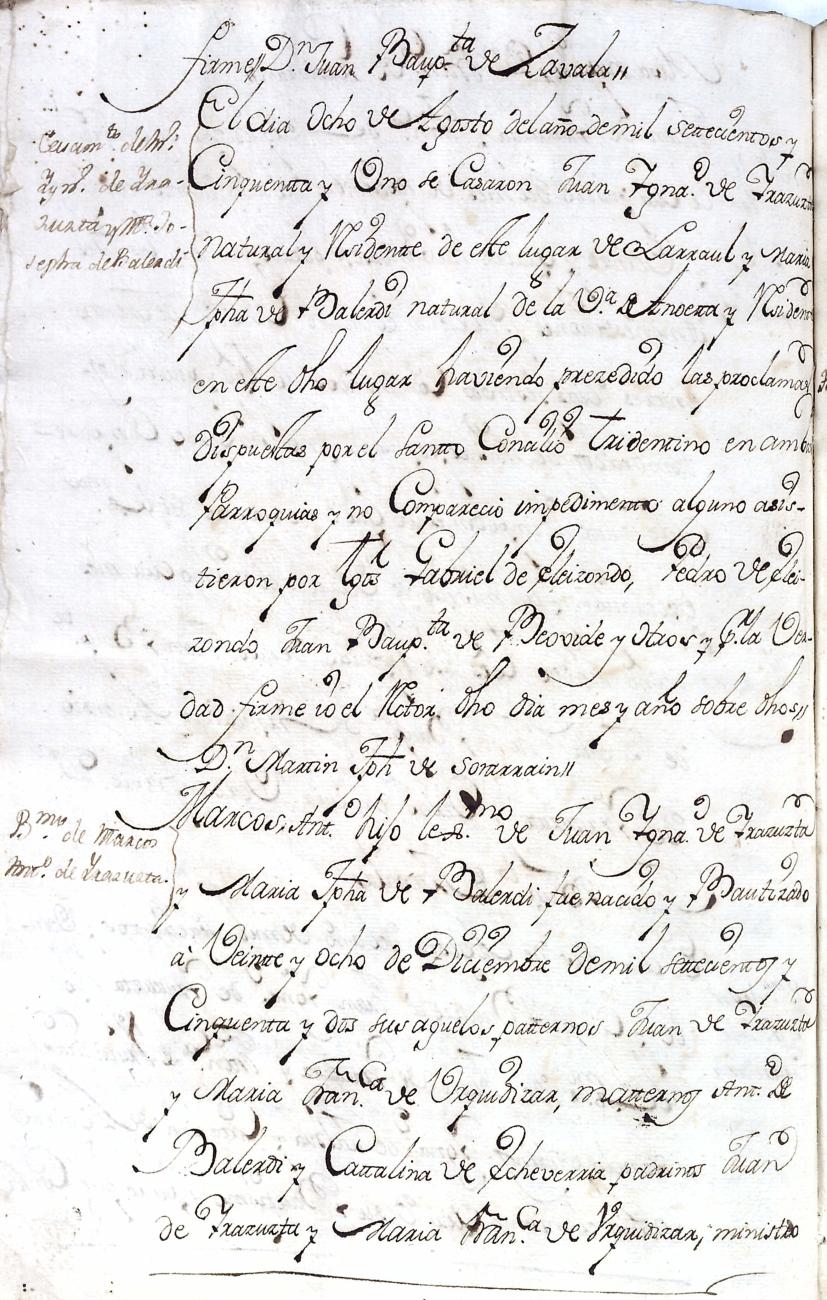 firme// Dn. Juan Baup.ta de Zavala//
Casam.to de Jn.
Ygn.o de Yra-
zuzta y Ma. Jo-
sepha de Balerdi
El dia Ocho de Agosto del año de mil settecientos y
Cinquentta y Uno se Casaron Juan Ygna.o de Irazuzta
natural y Residente de este lugar de Larraul y Maria
Jpha de Balerdi natural de la V.a de Anoetta y Residente
en este dho lugar haviendo prezedido las proclamas
dispuestas por el Santto Concilio Tridentino en ambas
Parroquias y no Comparecio impedimento alguno asis-
tieron por tgos Gabriel de Eleizondo, Pedro de Elei-
zondo Juan Baup.ta de Beovide y Otros y Pa. la Ver-
dad firme io el Rector dho dia mes y año sobre dhos//
Dn. Martin Jph de Sorarrain//
B.mo de Marcos
Antt.o de Yrazuzta
Marcos Ant.o hijo lex.mo de Juan Ygna.o de Irazuzta
y Maria Jpha de Balerdi fue nacido y Bautizado
à Veinte y Ocho de Diciembre de mil settecientos y
Cinquenta y dos sus aguelos patternos Juan de Irazuzta
y Maria Fran.ca de Urquidizar, matternos Ant.o de
Balerdi y Cattalina de Echeverria padrinos Juan
de Irazuzta y Maria Fran.ca de Urquidizar, ministro